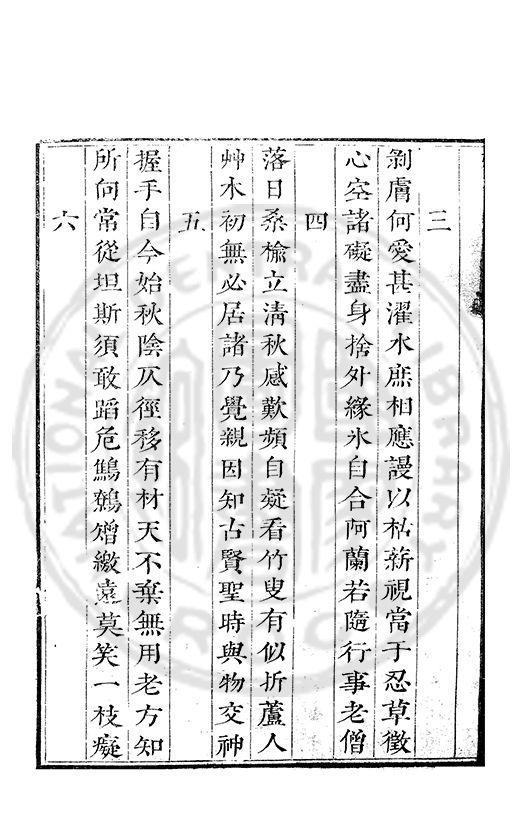 三
剝膚何愛甚濯水庶相應謾以枯薪視當于忍草徵
心空諸礙盡身捨外緣氷自合阿蘭若隨行事老僧
四
落日桑楡立清秋感歎頻自疑看竹叟有似折蘆人
艸木初無必居諸乃覺親因知古賢聖時與物交神
五
握手自今始秋陰仄徑移有材天不棄無用老方知
所向常從坦斯須敢蹈危鷦鷯矰繳遠莫笑一枝癡
六